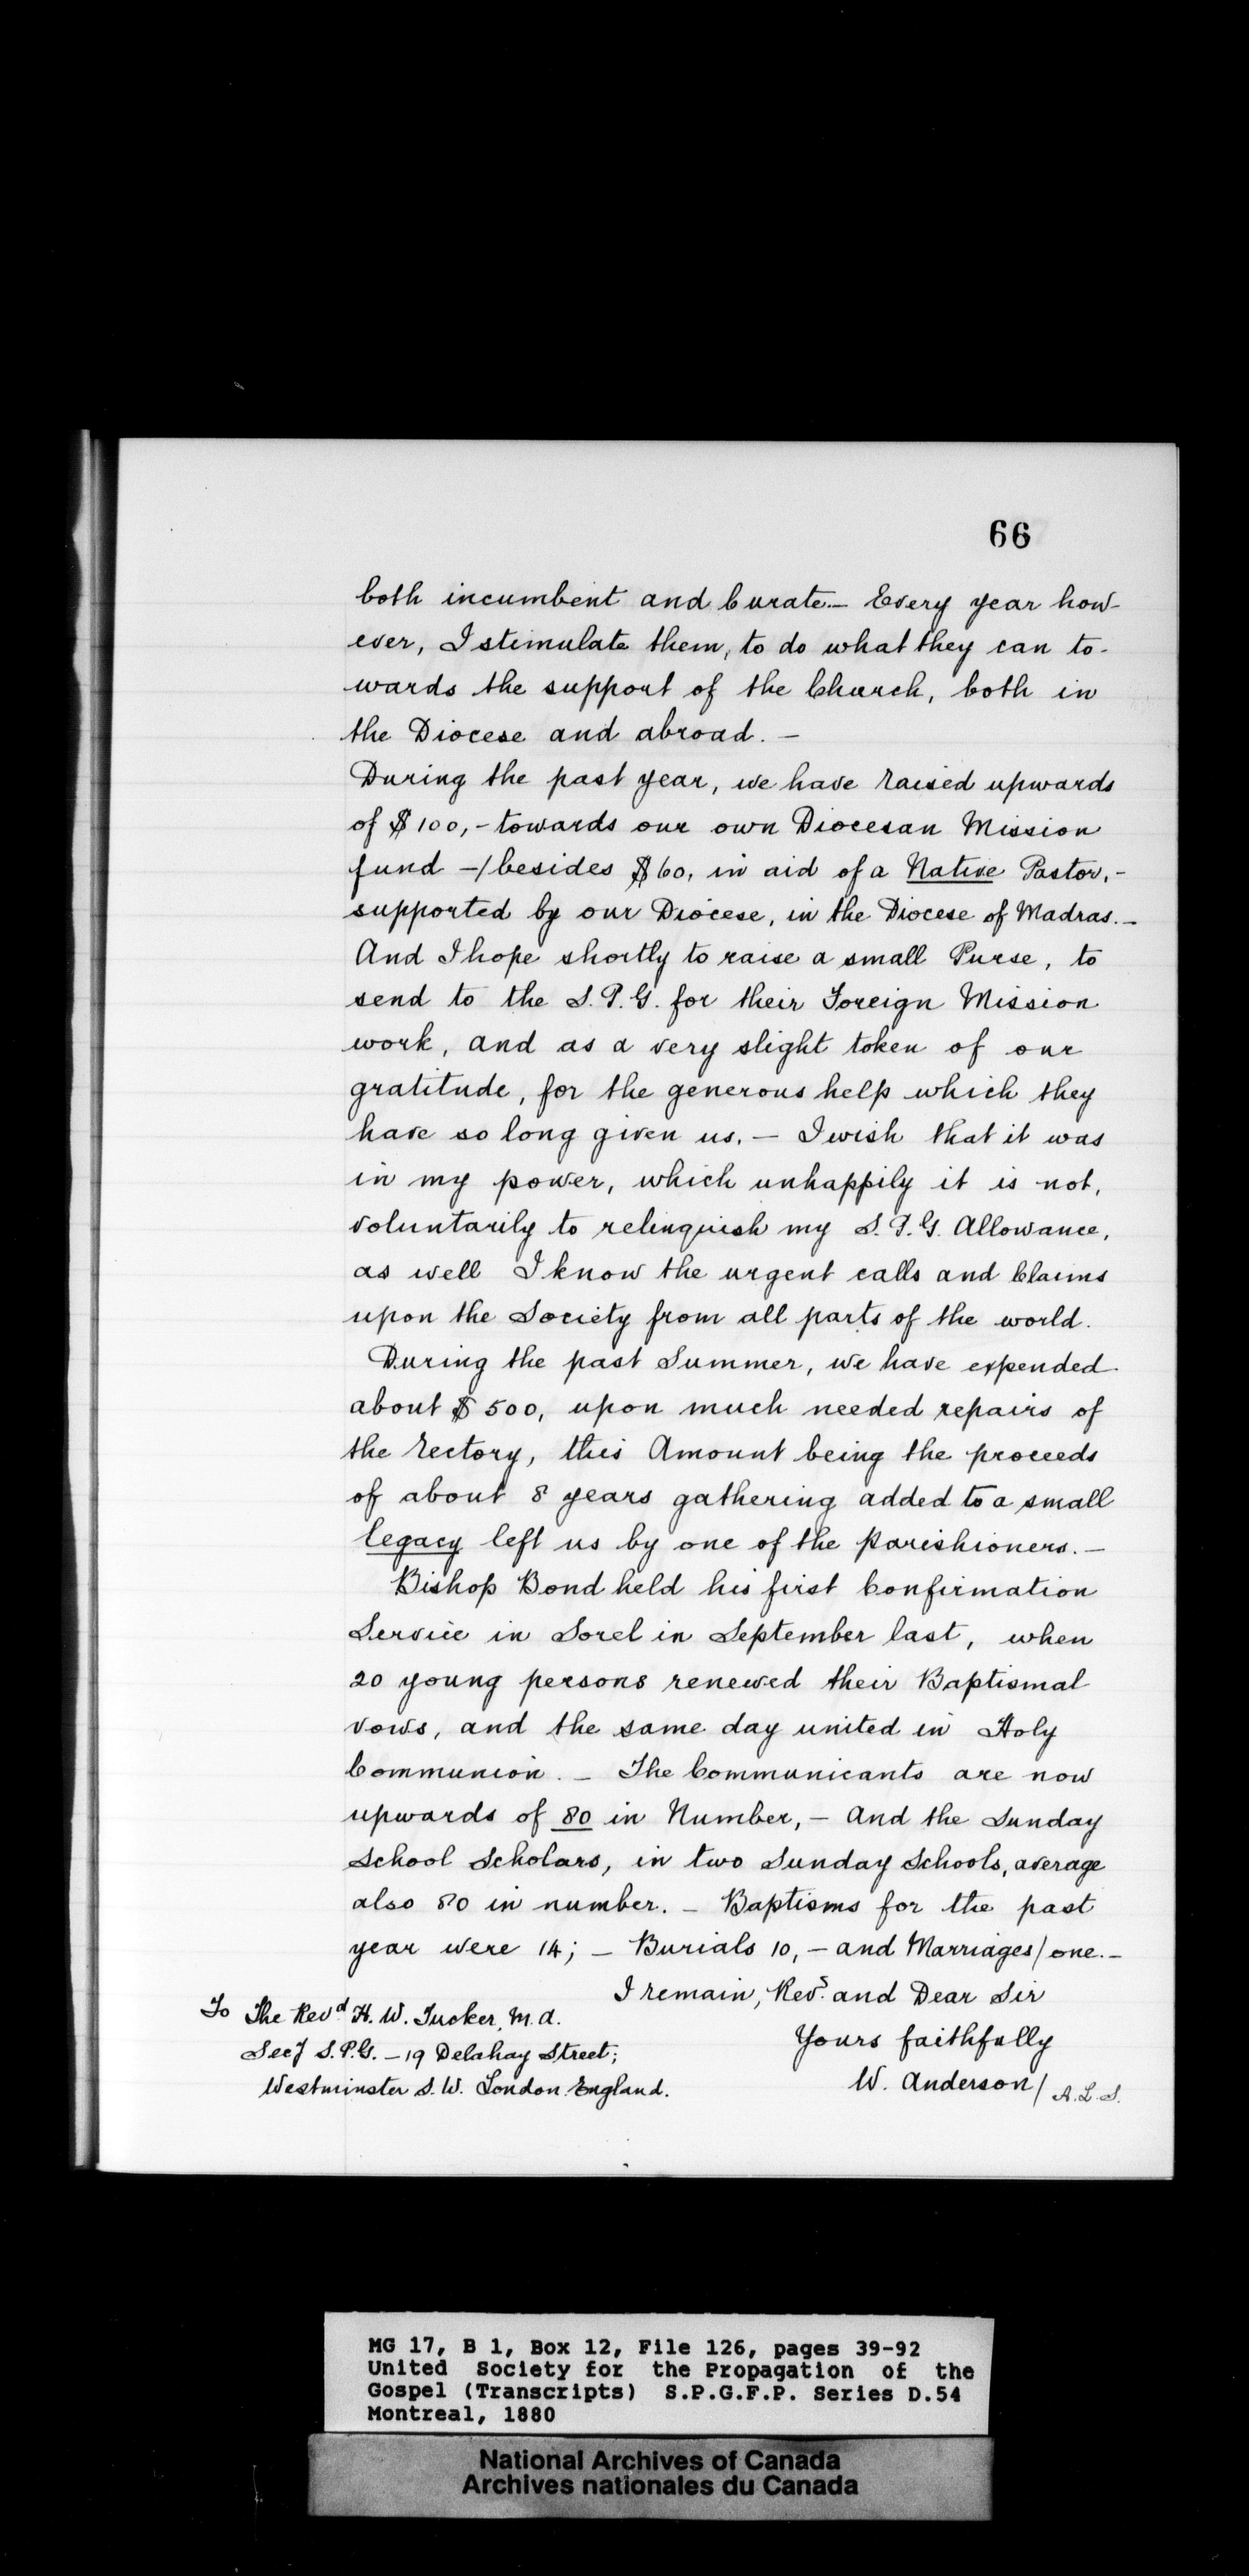 66
both incumbent and Curate.— Every year how-
ever, I stimulate them, to do what they can to-
wards the support of the Church, both in
the Diocese and abroad. —
During the past year, we have raised upwards
of $100,- towards our own Diocesan Mission
fund —/ besides $60, in aid of a Native Pastor, -
supported by our Diocese, in the Diocese of Madras. —
And I hope shortly to raise a small Purse, to
send to the S. P. G. for their Foreign Mission
work, and as a very slight token of our
gratitude, for the generous help which they
have so long given us. — I wish that it was
in my power, which unhappily it is not,
voluntarily to relinquish my S. P. G. Allowance,
as well I know the urgent calls and Claims
upon the Society from all parts of the world.
During the past Summer, we have expended
about $500, upon much needed repairs of
the rectory, this Amount being the proceeds
of about 8 years gathering added to a small
legacy left us by one of the parishioners. —
Bishop Bond held his first Confirmation
Service in Sorel in September last, when
20 young persons renewed their Baptismal
vows, and the same day united in Holy
Communion. — The Communicants are now
upwards of 80 in Number, — And the Sunday
School Scholars, in two Sunday Schools, average
also 80 in number. — Baptisms for the past
year were 14; — Burials 10, — and Marriages/ one. —
I remain, Revd. and Dear Sir
Yours faithfully
W. Anderson/ A. L. S.
To The Revd H. W. Tucker, M. A.
Secy S. P. G. — 19 Delahay Street;
Westminster S. W. London England.
MG 17, B 1, Box 12, File 126, pages 39-92
United Society for the Propagation of the
Gospel (Transcripts) S.P.G.F.P. Series D.54
Montreal, 1880
National Archives of Canada
Archives nationales du Canada